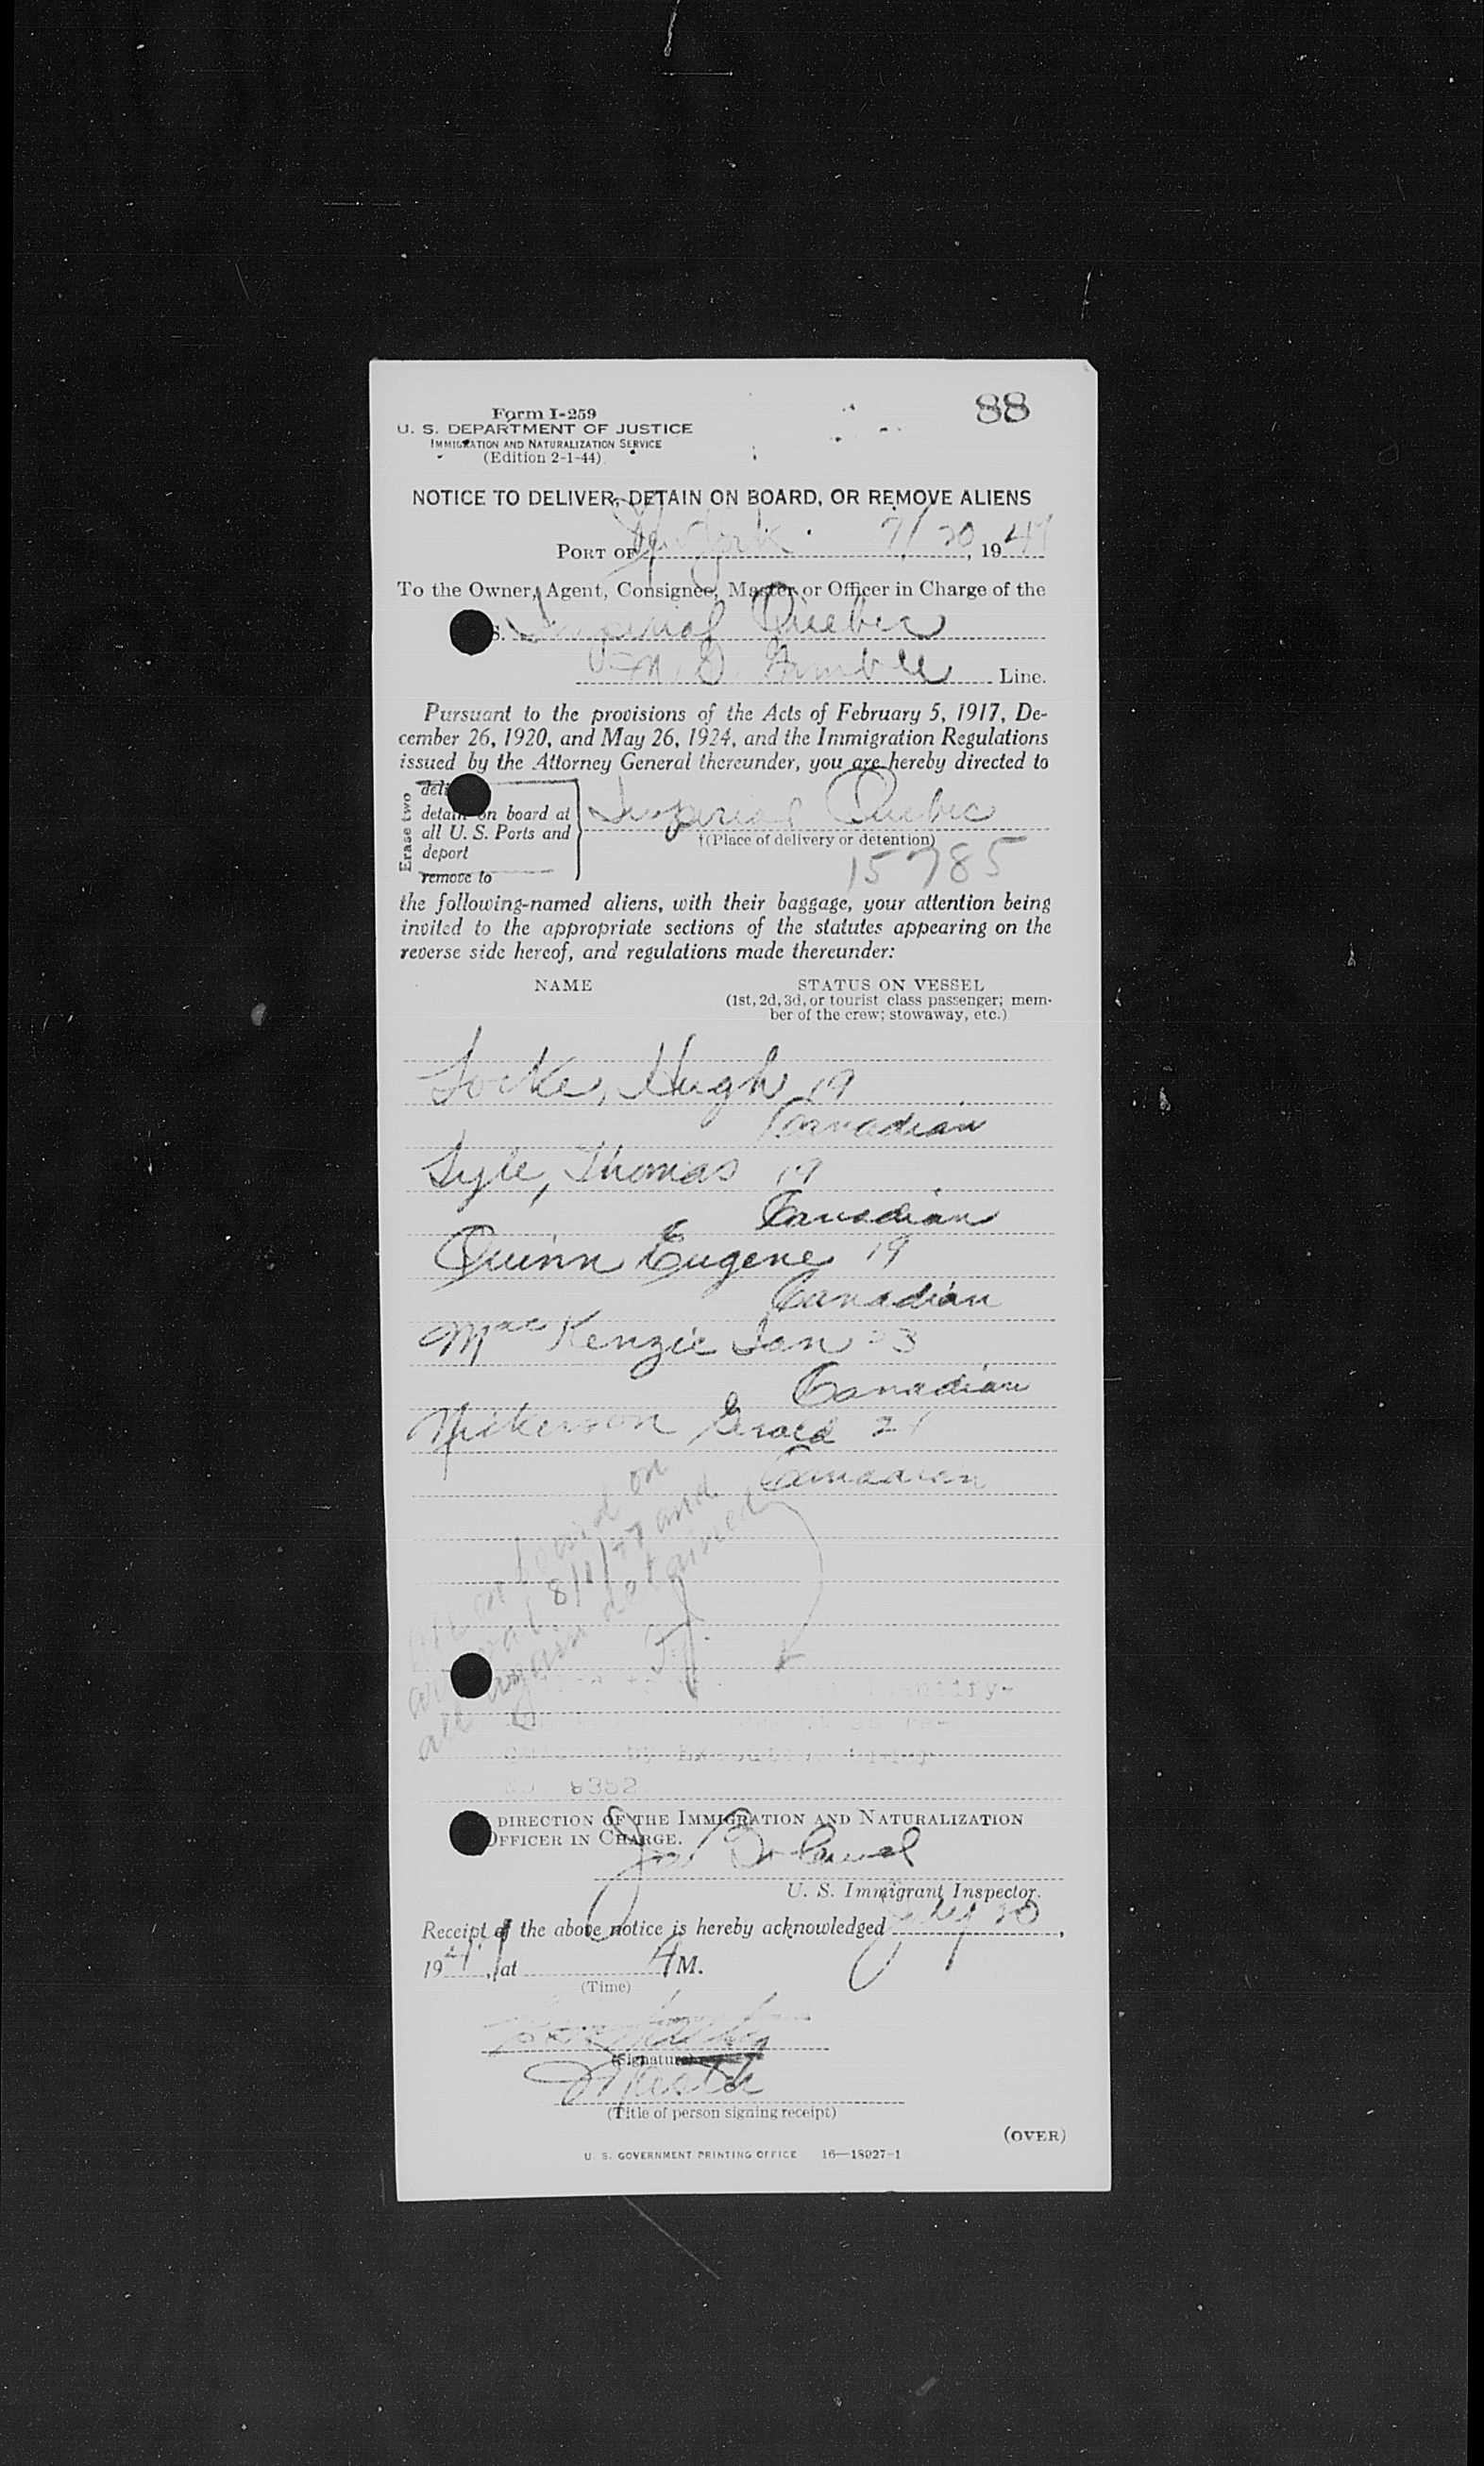 88
Form I-259
U. S. DEPARTMENT OF JUSTICE
IMMIGRATION AND NATURALIZATION SERVICE
(Edition 2-1-44)
NOTICE TO DELIVER, DETAIN ON BOARD, OR REMOVE ALIENS
PORT OF New York 7/20, 1947
To the Owner, Agent, Consignee, Master or Officer in Charge of the
S. Imperial Quebec
Line.
Pursuant to the provisions of the Acts of February 5, 1917, De-
cember 26, 1920, and May 26, 1924, and the Immigration Regulations
issued by the Attorney General thereunder, you are hereby directed to
Erase two
detain on board at
all U. S. Ports and
deport
remove to
Imperial Quebec
†(Place of delivery or detention)
15785
the following-named aliens, with their baggage, your attention being
invited to the appropriate sections of the statutes appearing on the
reverse side hereof, and regulations made thereunder:
NAME STATUS ON VESSEL
(1st, 2d, 3d, or tourist class passenger; mem-
ber of the crew; stowaway, etc.)
Locke, Hugh 19
Canadian
Lyle, Thomas 19
Canadian
Quinn Eugene 19
Canadian
MacKenzie Ian 23
Canadian
Nickerson Gerald 21
Canadian
on board on
and
all again detained
No. 9352
DIRECTION OF THE IMMIGRATION AND NATURALIZATION
OFFICER IN CHARGE.
U. S. Immigrant Inspector.
Receipt of the above notice is hereby acknowledged July 20,
1947, at M.
(Time)
(Signature)
(Title of person signing receipt)
(OVER)
U. S. GOVERNMENT PRINTING OFFICE 16—18927-1